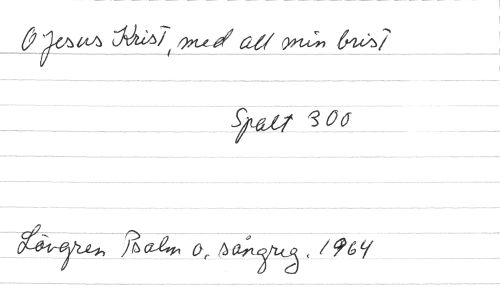 O Jesus Krist, med all min brist
Spalt 300
Lövgren Psalm o. sångreg. 1964